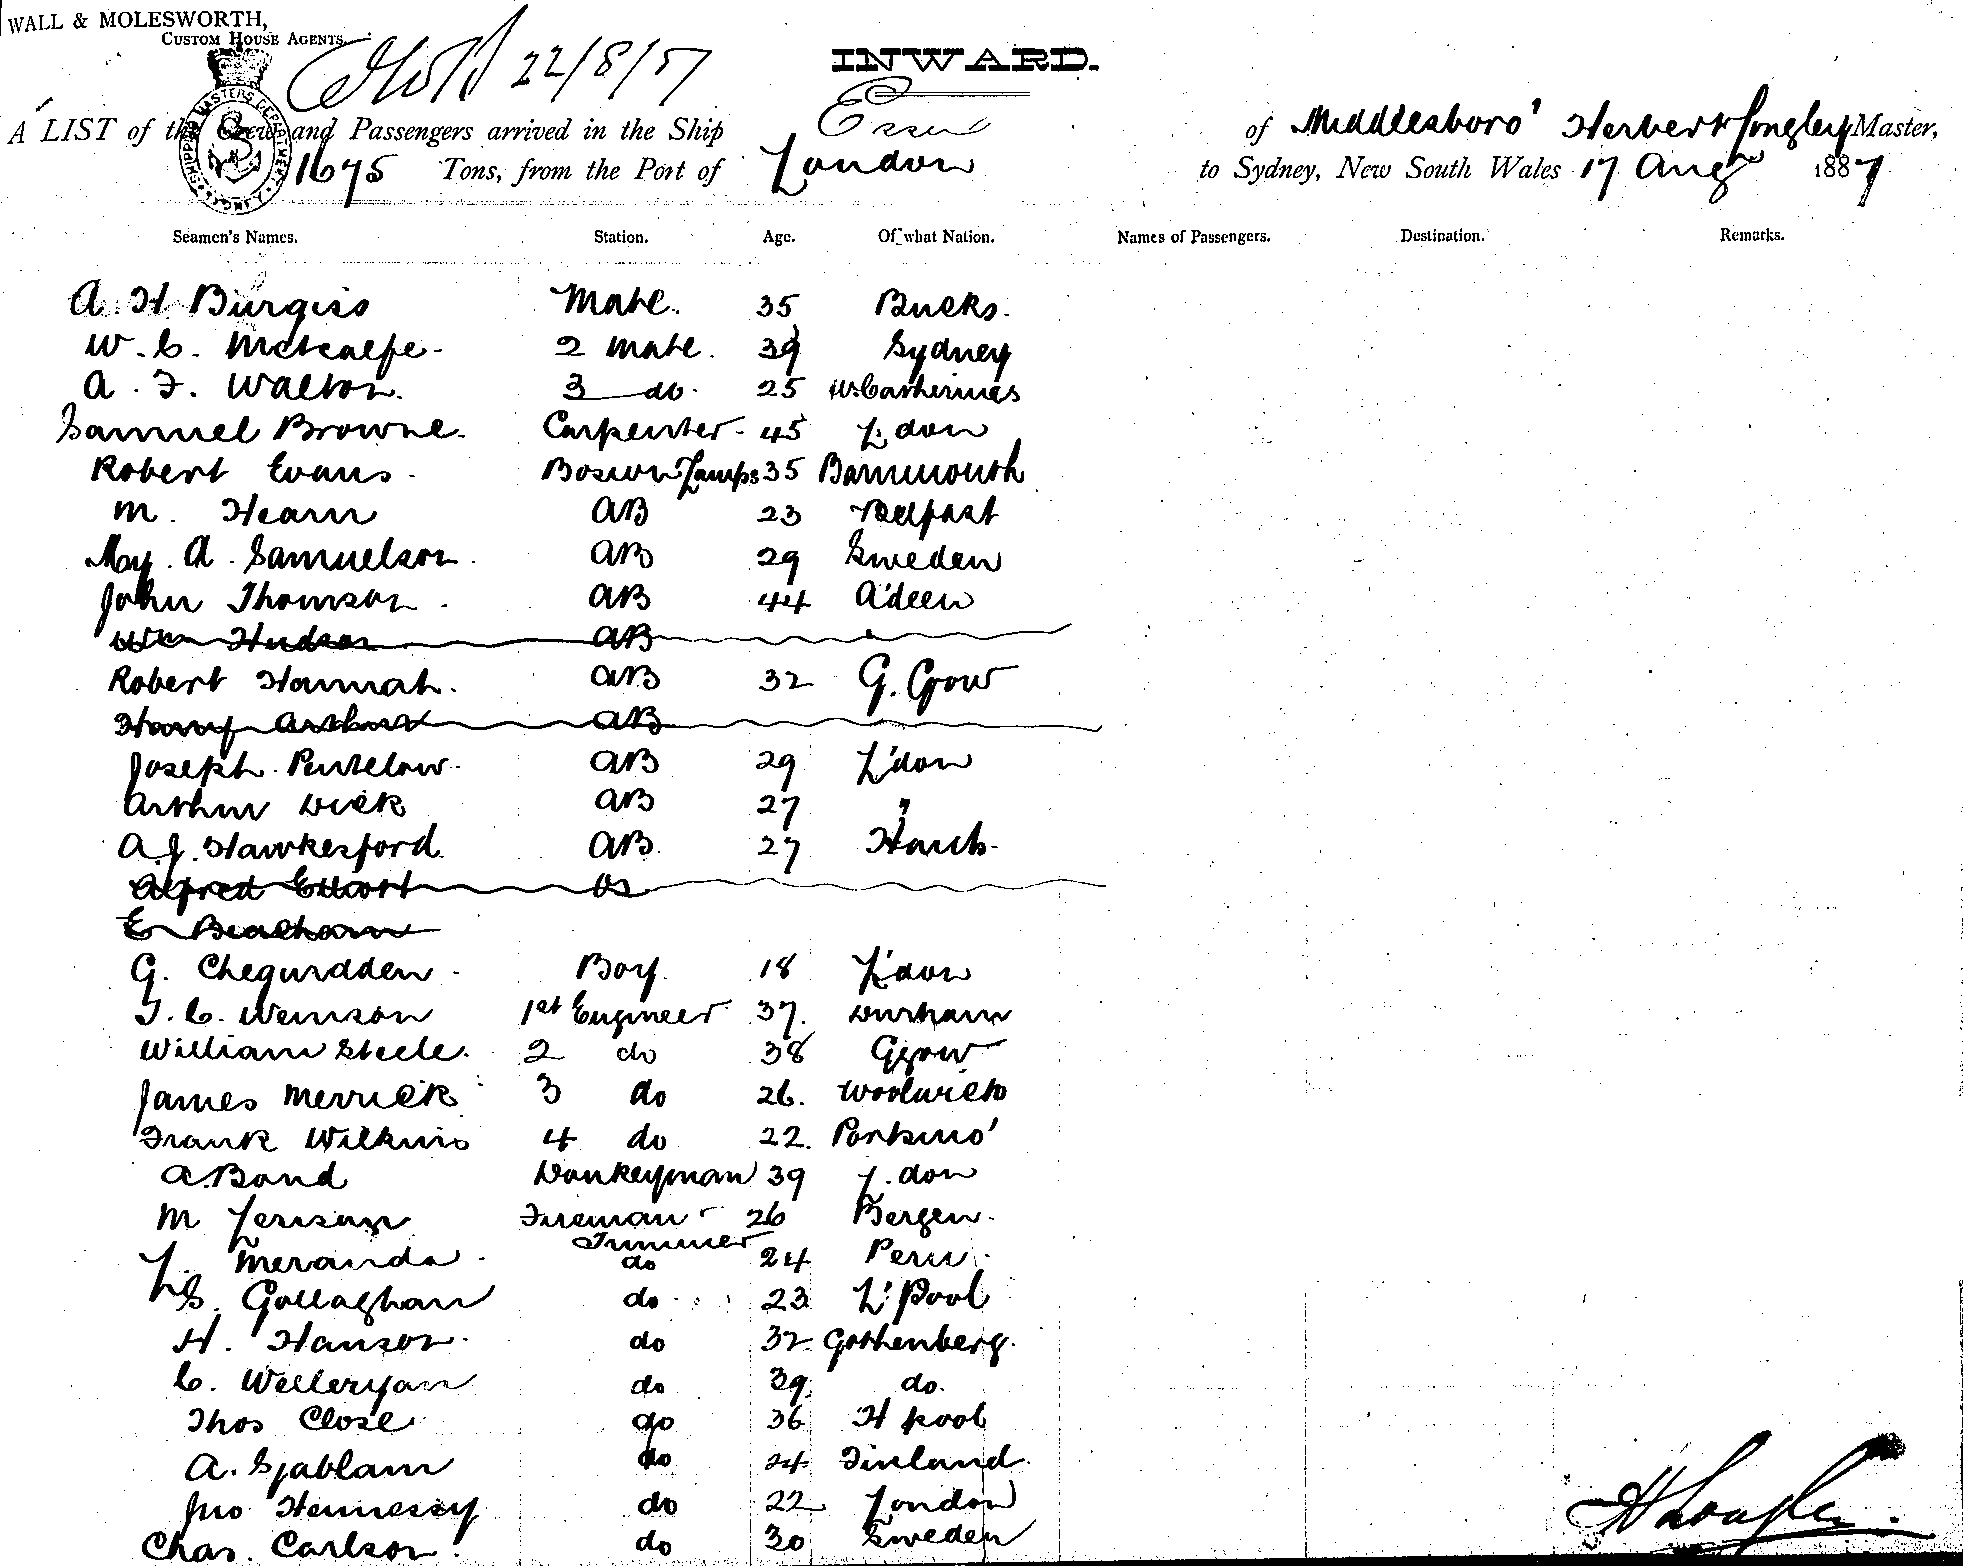 WALL & MOLESWORTH,
CUSTOM HOUSE AGENTS.
22/8/87
INWARD.
A LIST of the Crew and Passengers arrived in the Ship Essex of Middlesboro' Herbert Longley Master,
1675 Tons, from the Port of London to Sydney, New South Wales 17 Aug 1887
Seamen's Names. Station. Age. Of what Nation. Names of Passengers. Destination. Remarks.
A. H Burgiss Mate. 35 Bucks.
W. C. Metcalfe. 2 Mate. 39 Sydney
A. F. Walton. 3 do. 25 St. Catherines
Samuel Browne. Carpenter. 45 L'don
Robert Evans. Bosun Lamps 35 Barmouth
M. Hearn AB 23 Belfast
My. A. Samuelson. AB 29 Sweden
John Thomson. AB 44 A'deen
Wm Hudson AB
Robert Hannah. AB 32 G. Gow
Harry Arthur AB
Joseph Pentelow. AB 29 L'don
Arthur Dick AB 27 "
A. J. Hawkesford. AB. 27 Hants.
Alfred Elliott OS
E
G. Chegwidden. Boy. 18 L'don
T. C. Wemson 1st Engineer 37. Durham
William Steele. 2 do 38 Ggow
James Merrick 3 do 26. Woolwich
Frank Wilkins 4 do 22. Portsmo'
A. Bond Donkeyman 39 L. don
M Fireman 26 Bergen.
Trimmer
L. Meranda. do 24 Peru.
S. Gollaghan do 23 L'Pool
H. Hanson. do 32 Gothenberg.
C. Welleryan do 39 do.
Thos Close do 36 H pool
A. Sjablam do 24 Finland.
Jno Hennessy do 22 London
Chas. Carlson. do 30 Sweden
H Longley.